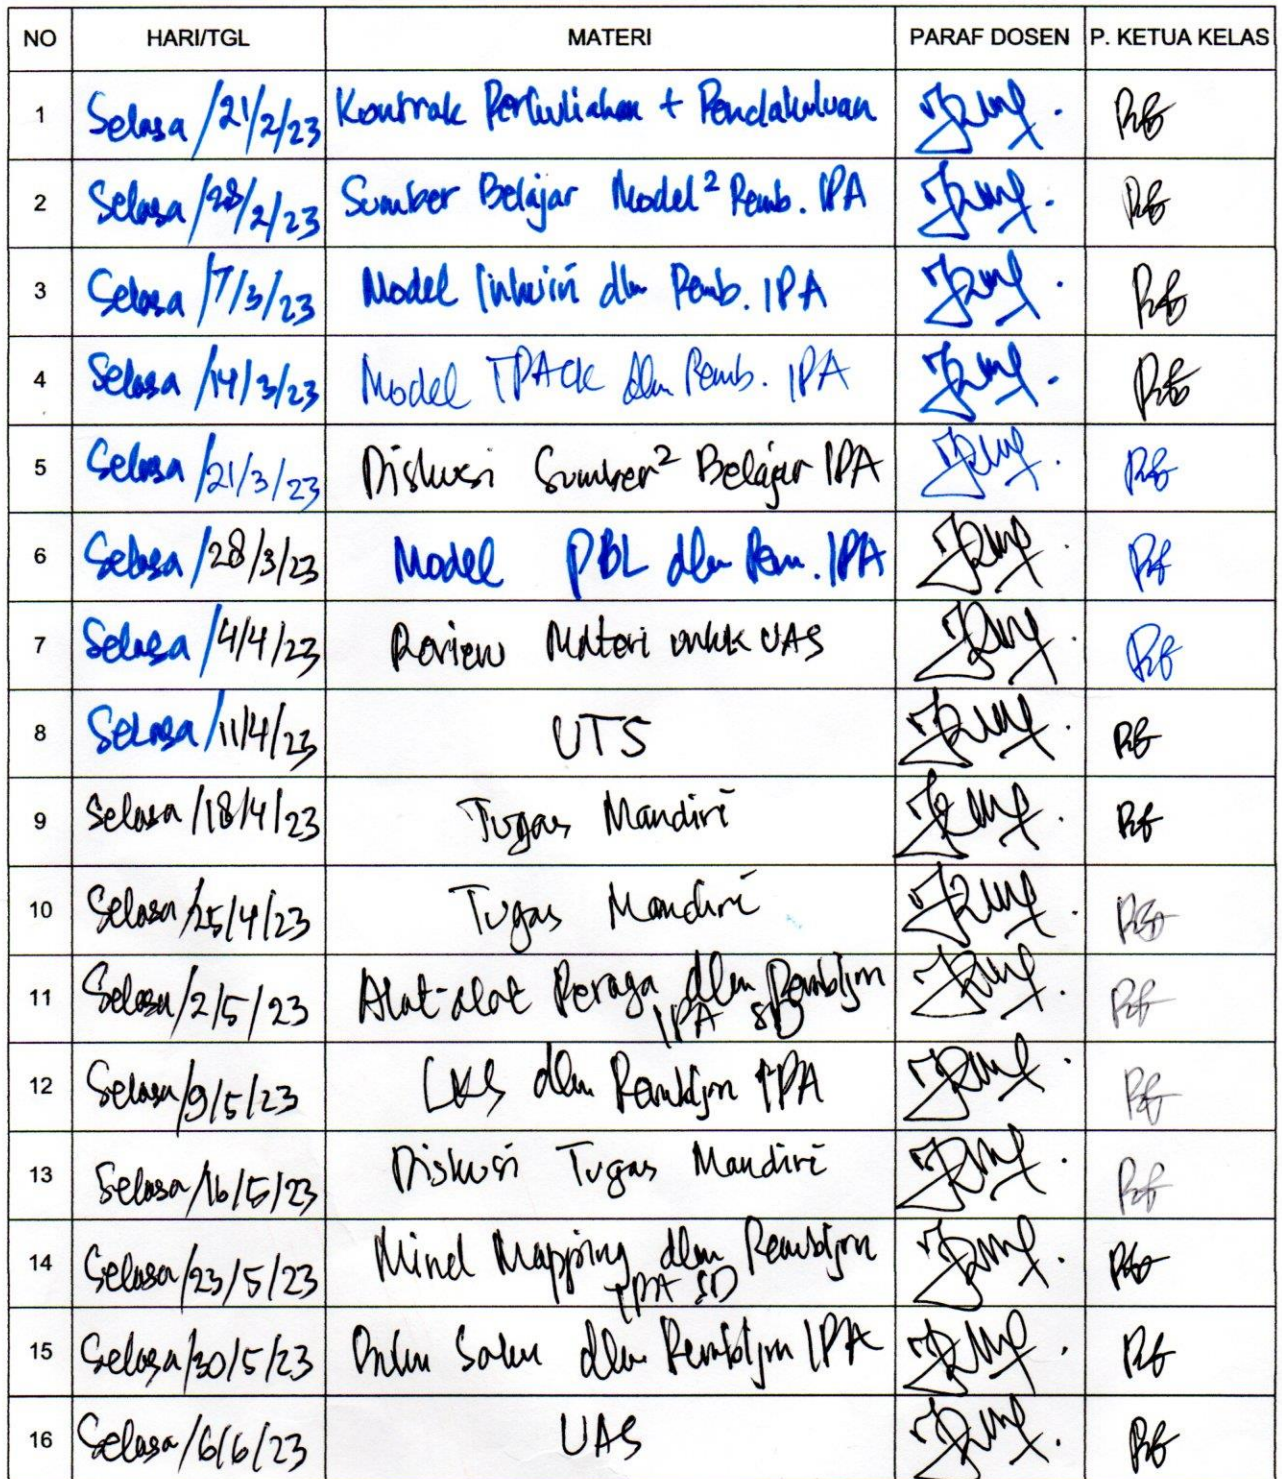 NO HARI/TGL MATERI PARAF DOSEN P. KETUA KELAS
1 Selasa /21/2/23 Kontrak Perkuliahan + Pendahuluan
2 Selasa /28/2/23 Sumber Belajar Model² Pemb. IPA
3 Selasa /7/3/23 Model Inkuiri dlm Pemb. IPA
4 Selasa /14/3/23 Model TPACK dlm Pemb. IPA
5 Selasa /21/3/23 Diskusi Sumber² Belajar IPA
6 Selasa /28/3/23 Model PBL dlm Pem. IPA
7 Selasa /4/4/23 Review Materi untuk UAS
8 Selasa /11/4/23 UTS
9 Selasa /18/4/23 Tugas Mandiri
10 Selasa /25/4/23 Tugas Mandiri
11 Selasa /2/5/23 Alat-alat Peraga dlm Pembljrn
IPA SD
12 Selasa /9/5/23 LKS dlm Pembljrn IPA
13 Selasa /16/5/23 Diskusi Tugas Mandiri
14 Selasa /23/5/23 Mind Mapping dlm Pembljrn
IPA SD
15 Selasa /30/5/23 Buku Saku dlm Pembljrn IPA
16 Selasa /6/6/23 UAS